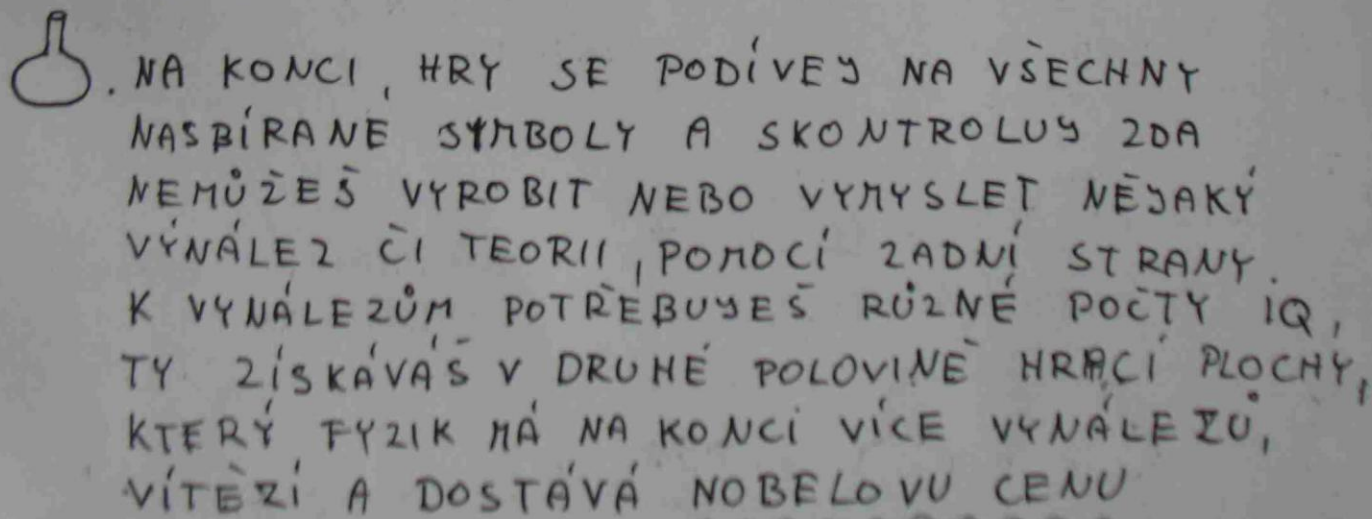 . NA KONCI, HRY SE PODÍVEJ NA VŠECHNY
NASBÍRANÉ SYMBOLY A SKONTROLUJ ZDA
NEMŮŽEŠ VYROBIT NEBO VYMYSLET NĚJAKÝ
VÝNÁLEZ ČI TEORII, POMOCÍ ZADNÍ STRANY.
K VYNÁLEZŮM POTŘEBUJEŠ RŮZNÉ POČTY IQ,
TY ZÍSKÁVÁŠ V DRUHÉ POLOVINĚ HRACÍ PLOCHY,
KTERÝ FYZIK MÁ NA KONCI VÍCE VYNÁLEZŮ,
VÍTĚZÍ A DOSTÁVÁ NOBELOVU CENU